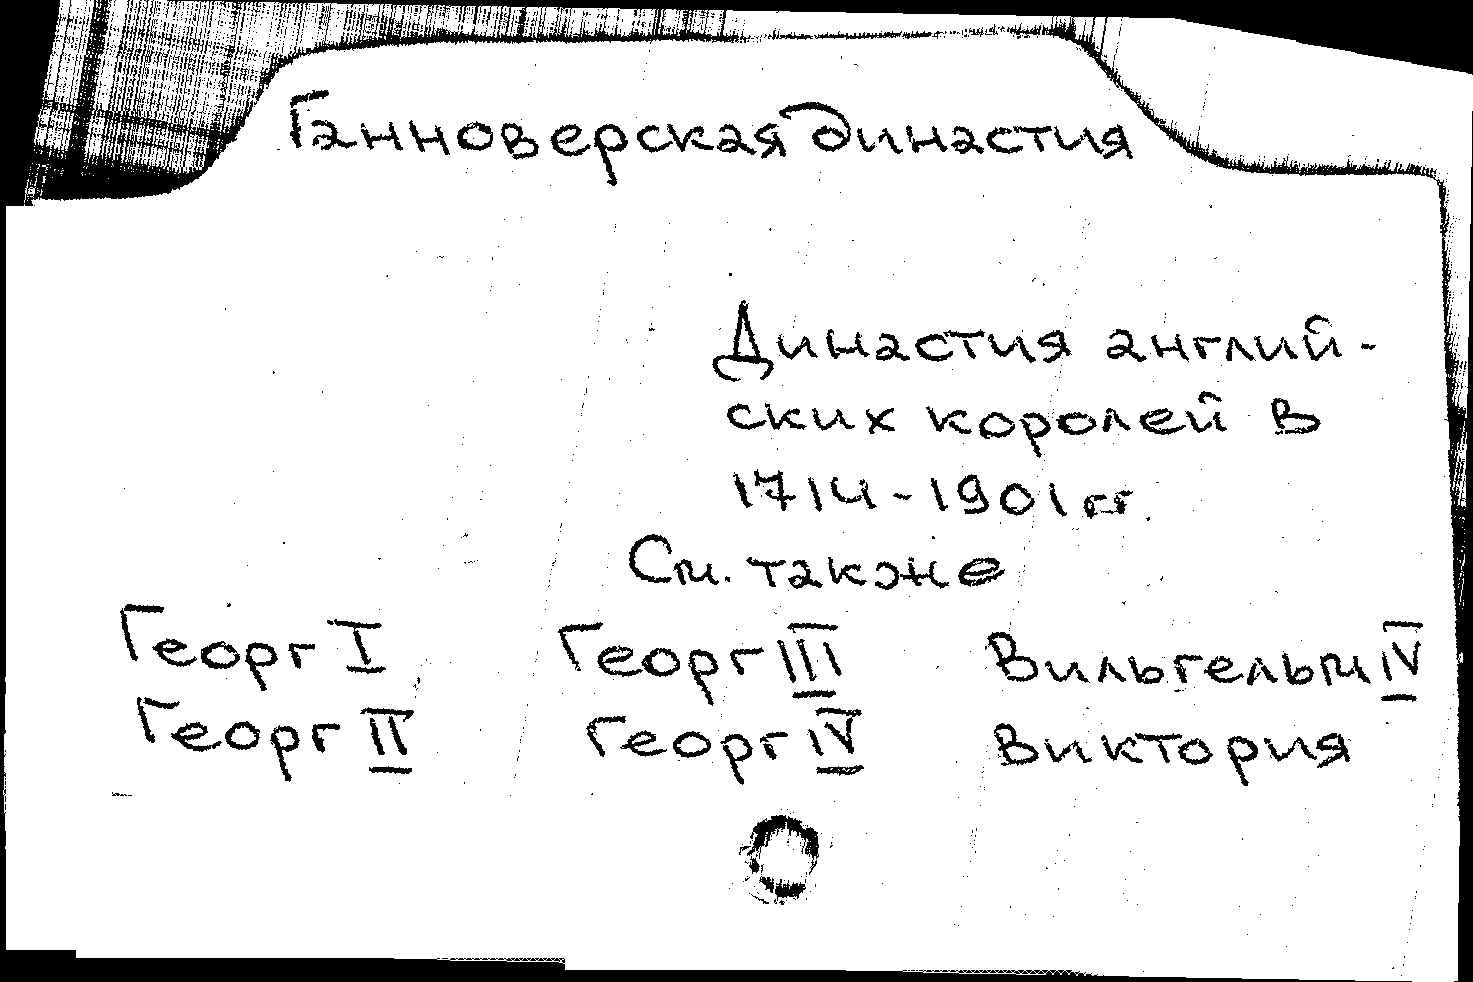 Ганноверская династия
Династия англий-
ских королей в
1714-1901 гг.
См. также
Георг I Георг III Вильгельм IV
Георг II Георг IV Виктория